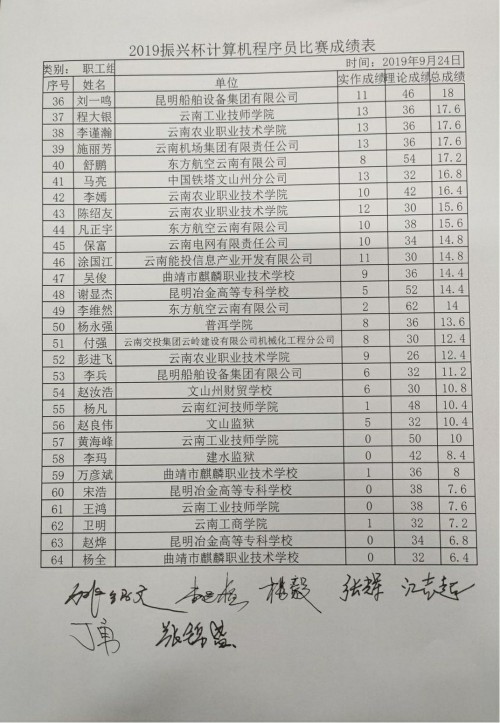 2019振兴杯计算机程序员比赛成绩表
类别： 职工组 时间：2019年9月24日
序号 姓名 单位 实作成绩 理论成绩 总成绩
36 刘一鸣 昆明船舶设备集团有限公司 11 46 18
37 程大银 云南工业技师学院 13 36 17.6
38 李谨瀚 云南农业职业技术学院 13 36 17.6
39 施丽芳 云南机场集团有限责任公司 13 36 17.6
40 舒鹏 东方航空云南有限公司 8 54 17.2
41 马亮 中国铁塔文山州分公司 13 32 16.8
42 李嫣 云南农业职业技术学院 10 42 16.4
43 陈绍友 云南农业职业技术学院 12 30 15.6
44 凡正宇 东方航空云南有限公司 10 38 15.6
45 保富 云南电网有限责任公司 10 34 14.8
46 涂国江 云南能投信息产业开发有限公司 11 30 14.8
47 吴俊 曲靖市麒麟职业技术学校 9 36 14.4
48 谢显杰 昆明冶金高等专科学校 5 52 14.4
49 李维然 东方航空云南有限公司 2 62 14
50 杨永强 普洱学院 8 36 13.6
51 付强 云南交投集团云岭建设有限公司机械化工程分公司 8 30 12.4
52 彭进飞 云南农业职业技术学院 9 26 12.4
53 李兵 昆明船舶设备集团有限公司 6 32 11.2
54 赵汝浩 文山州财贸学校 6 30 10.8
55 杨凡 云南红河技师学院 1 48 10.4
56 赵良伟 文山监狱 5 32 10.4
57 黄海峰 云南工业技师学院 0 50 10
58 李玛 建水监狱 0 42 8.4
59 万彦斌 曲靖市麒麟职业技术学校 1 36 8
60 宋浩 昆明冶金高等专科学校 0 38 7.6
61 王鸿 云南工业技师学院 0 38 7.6
62 卫明 云南工商学院 1 32 7.2
63 赵烨 昆明冶金高等专科学校 0 34 6.8
64 杨全 曲靖市麒麟职业技术学校 0 32 6.4
杨毅 张辉 江志超
丁勇